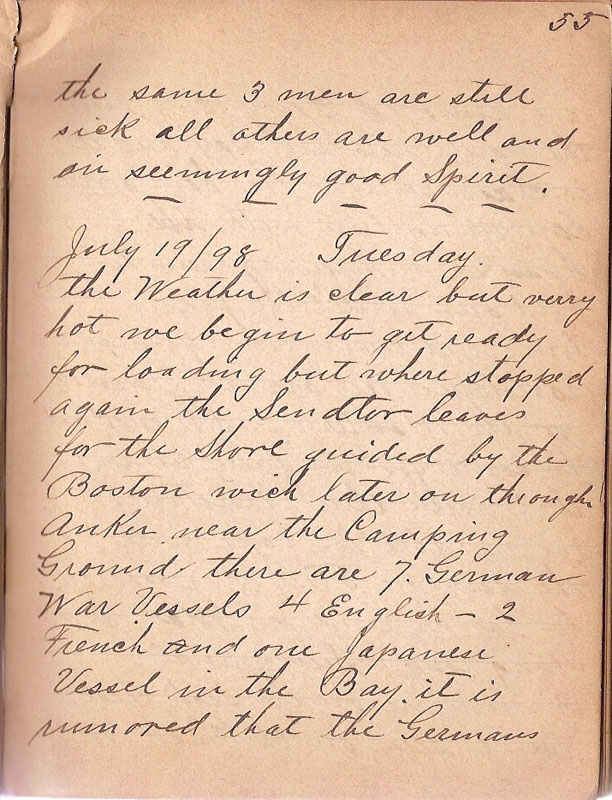 55
the same 3 men are still
sick all others are well and
in seemingly good Spirit.
July 19/98 Tuesday.
the Weather is clear but verry
hot we begin to get ready
for loading but where stopped
again the Sendtor leaves
for the Shore guided by the
Boston wich later on through
Anker near the Camping
Ground there are 7. German
War Vessels 4 English – 2
French and one Japanese
Vessel in the Bay. it is
rumored that the Germans